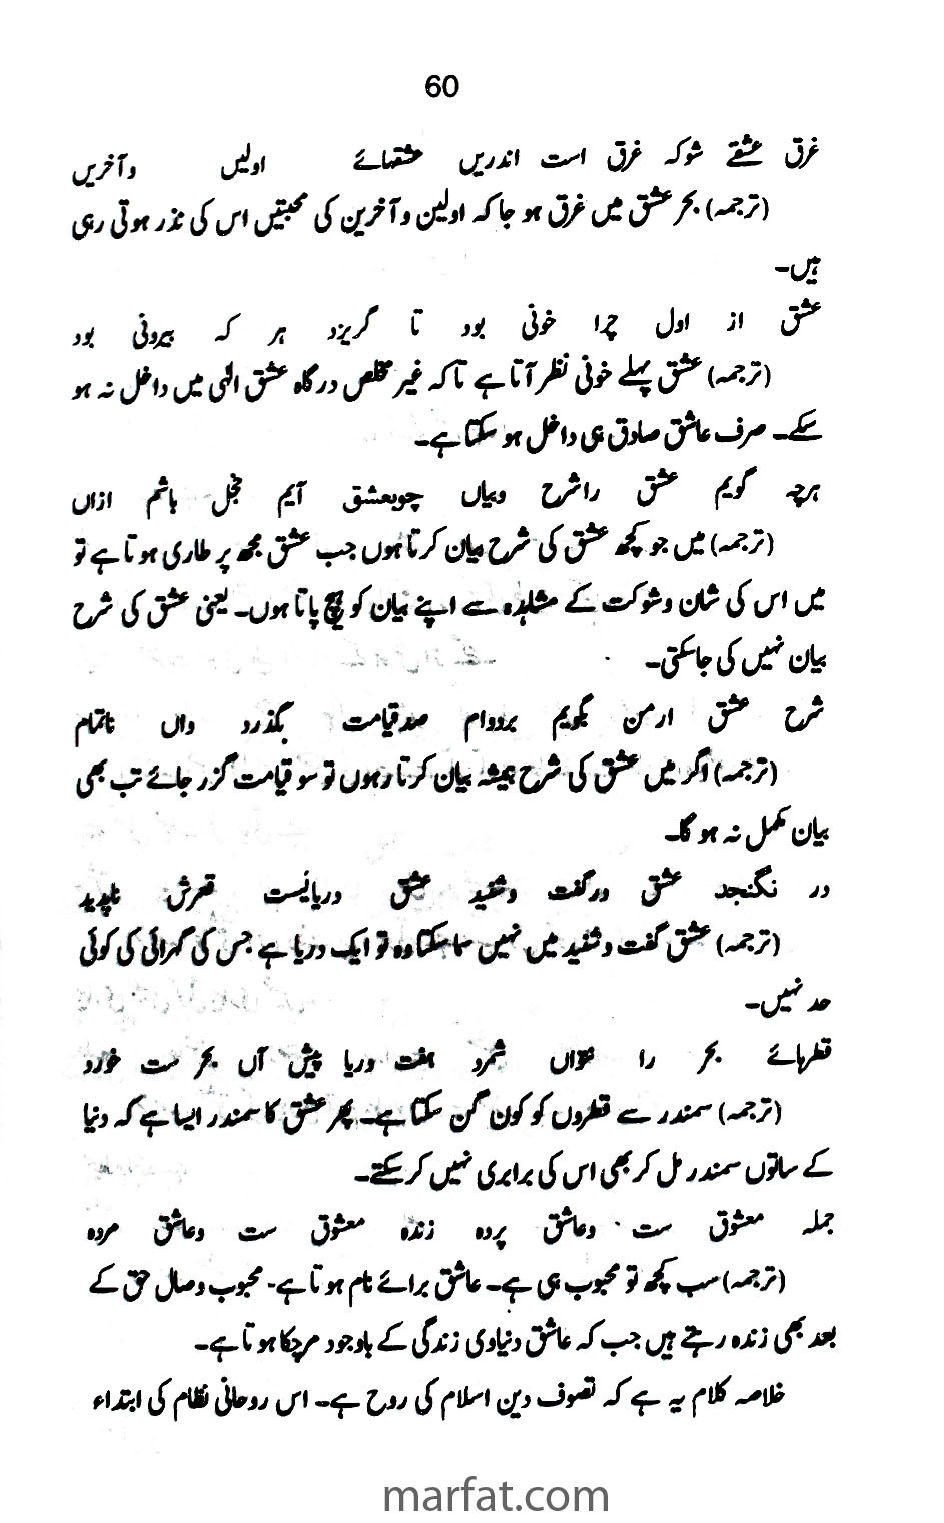 60
غرق عشقے شو کہ غرق است اندریں عشقہائے اولیں و آخریں
(ترجمہ) بحر عشق میں غرق ہو جا کہ اولین و آخرین کی محبتیں اس کی نذر ہوتی رہی
ہیں۔
عشق از اول چرا خونی بود تا گریزد ہر کہ بیرونی بود
(ترجمہ) عشق پہلے خونی نظر آتا ہے تاکہ غیر مخلص درگاہ عشق الٰہی میں داخل نہ ہو
سکے۔ صرف عاشق صادق ہی داخل ہو سکتا ہے۔
ہرچہ گویم عشق را شرح و بیاں چوں بعشق آیم خجل باشم ازاں
(ترجمہ) میں جو کچھ عشق کی شرح بیان کرتا ہوں جب عشق مجھ پر طاری ہوتا ہے تو
میں اس کی شان و شوکت کے مشاہدہ سے اپنے بیان کو ہیچ پاتا ہوں۔ یعنی عشق کی شرح
بیان نہیں کی جا سکتی۔
شرح عشق ار من بگویم بردوام صد قیامت بگذرد واں ناتمام
(ترجمہ) اگر میں عشق کی شرح ہمیشہ بیان کرتا رہوں تو سو قیامت گزر جائے تب بھی
بیان مکمل نہ ہو گا۔
در نگنجد عشق در گفت و شنید عشق دریائیست قعرش ناپدید
(ترجمہ) عشق گفت و شنید میں نہیں سما سکتا وہ تو ایک دریا ہے جس کی گہرائی کی کوئی
حد نہیں۔
قطرہائے بحر را نتواں شمرد ہفت دریا پیش آں بحر ست خورد
(ترجمہ) سمندر سے قطروں کو کون گن سکتا ہے۔ پھر عشق کا سمندر ایسا ہے کہ دنیا
کے ساتوں سمندر مل کر بھی اس کی برابری نہیں کر سکتے۔
جملہ معشوق ست و عاشق پردہ زندہ معشوق ست و عاشق مردہ
(ترجمہ) سب کچھ تو محبوب ہی ہے۔ عاشق برائے نام ہوتا ہے۔ محبوب وصال حق کے
بعد بھی زندہ رہتے ہیں جب کہ عاشق دنیاوی زندگی کے باوجود مرچکا ہوتا ہے۔
خلاصہ کلام یہ ہے کہ تصوف دین اسلام کی روح ہے۔ اس روحانی نظام کی ابتداء
marfat.com